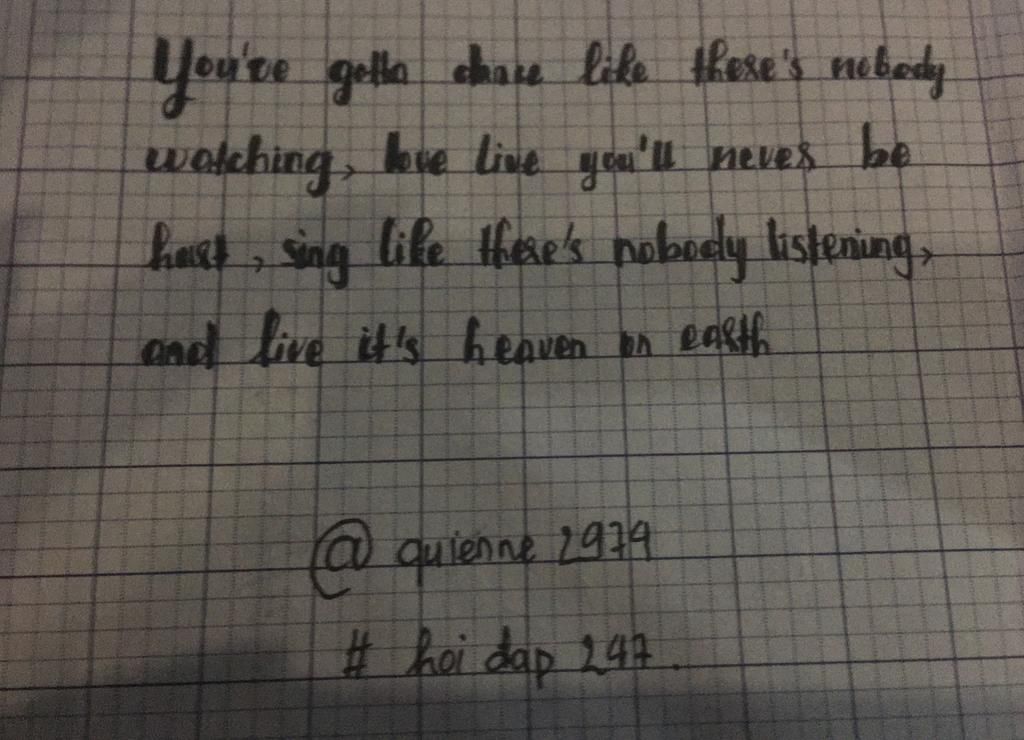 You've gotta dance like there's nobody
watching, love live you'll never be
hurt, sing like there's nobody listening,
and live it's heaven on earth
@ quienne 2979
# hoi dap 247.